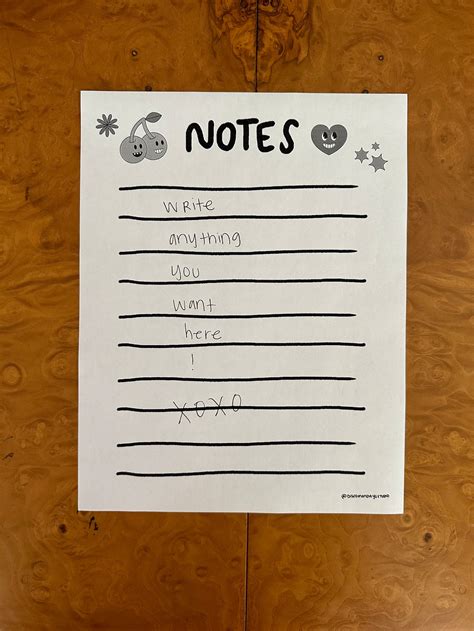 NOTES
write
anything
you
want
here
!
XOXO